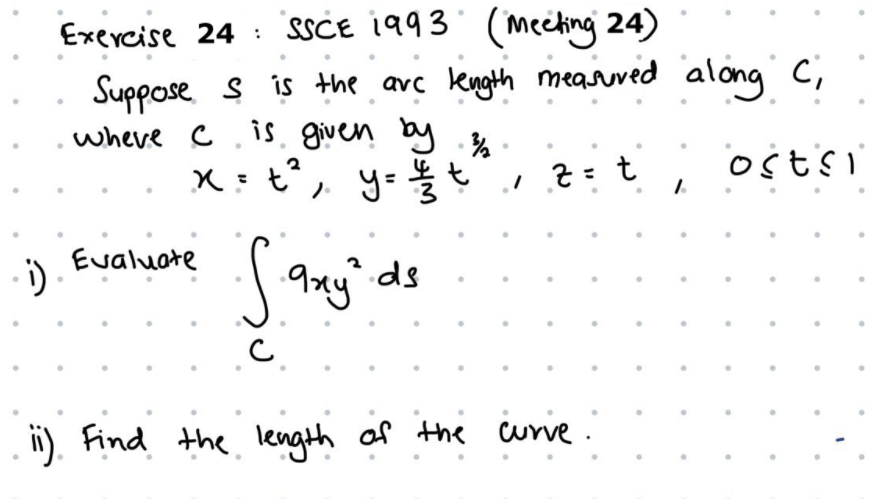 Exercise 24 : SSCE 1993 (Meeting 24)
Suppose s is the arc length measured along C,
where C is given by
x = t², y = 4/3 t^3/2, z = t, 0 ≤ t ≤ 1
i) Evaluate ∫_C 9xy² ds
ii) Find the length of the curve.